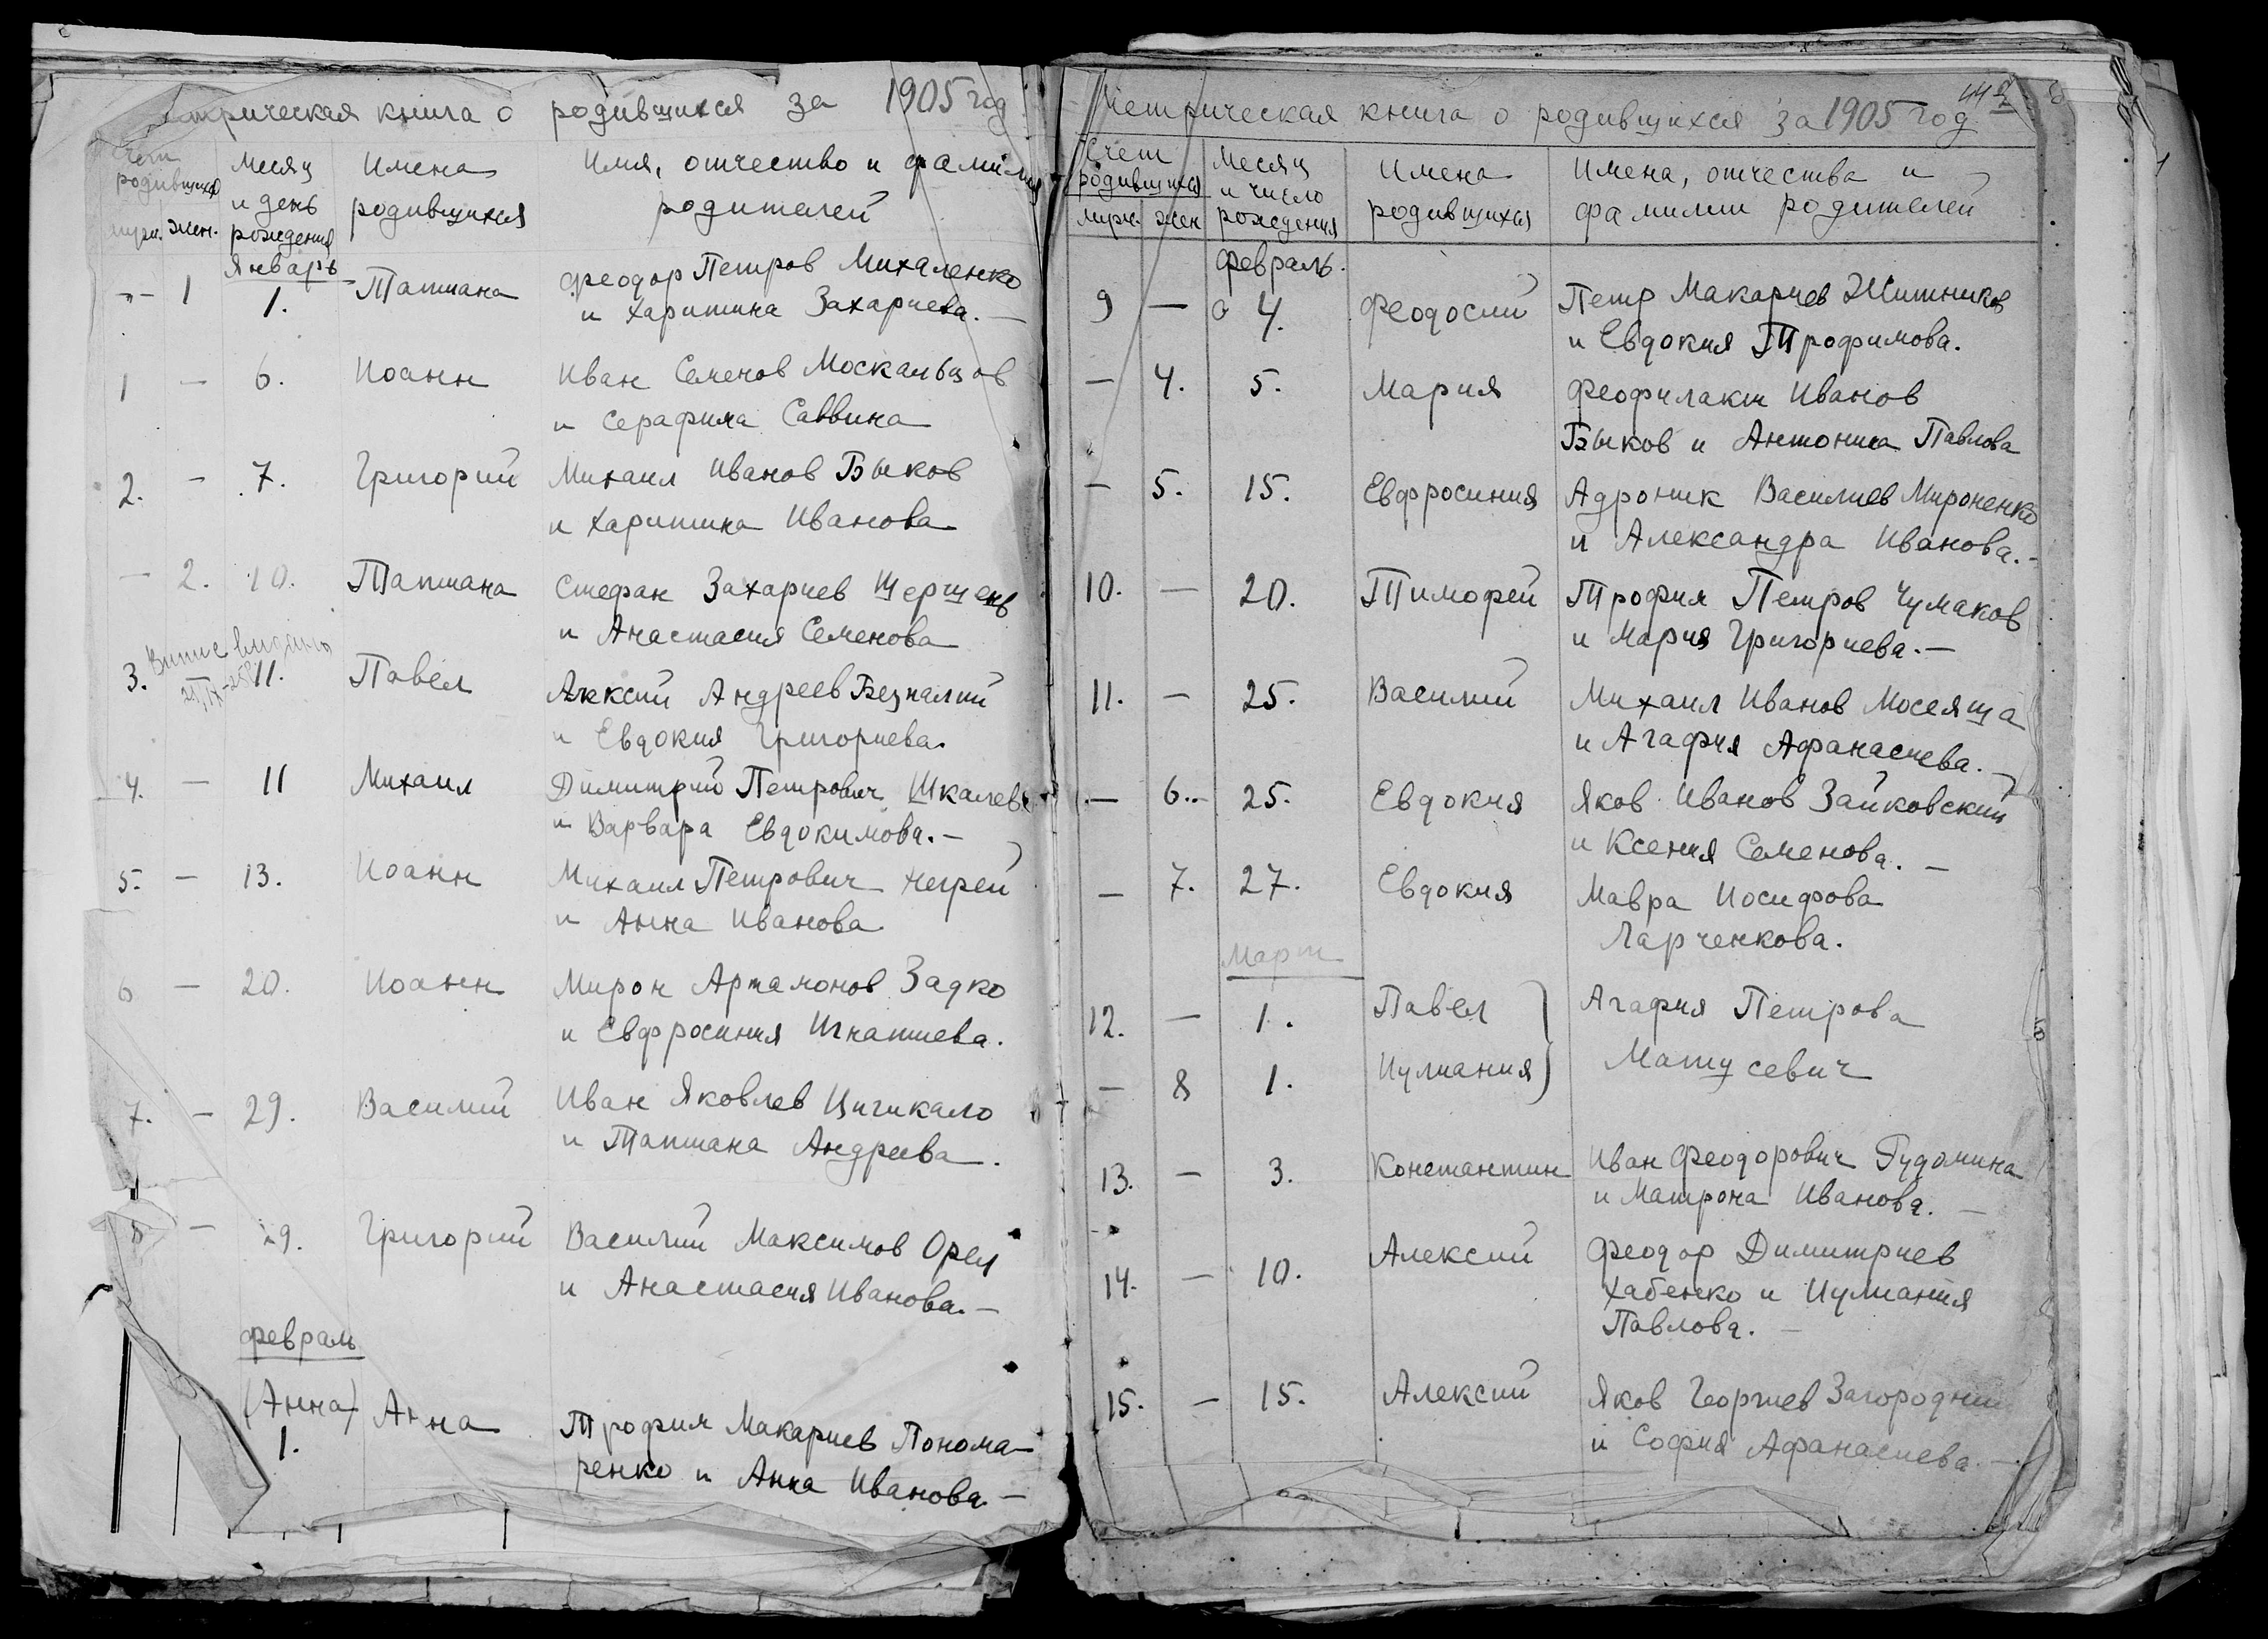 трическая книга о родившихся за 1905 год
Счет родившихся
муж. жен.
Месяц и день рождения
Имена родившихся
Имя, отчество и фамилия родителей
Январь
-"- 1 1. Татиана Феодор Петров Михаленко
и Харитина Захариева. —
1 — 6. Иоанн Иван Семенов Москальцов
и Серафима Саввина
2. — 7. Григорий Михаил Иванов Быков
и Харитина Иванова
— 2. 10. Татиана Стефан Захариев Шершень
и Анастасия Семенова
3. 11. Павел Алексий Андреев Безпалий
и Евдокия Григориева.
4. — 11 Михаил Димитрий Петрович
и Варвара Евдокимова. —
5. — 13. Иоанн Михаил Петрович Негрей
и Анна Иванова
6 — 20. Иоанн Мирон Артамонов Задко
и Евфросиния Игнатиева.
7. — 29. Василий Иван Яковлев Цигикало
и Татиана Андреева.
8 — 29. Григорий Василий Максимов Орел
и Анастасия Иванова. —
февраль
(Анна)
1. Анна Трофим Макариев Понома-
ренко и Анна Иванова. —
Метрическая книга о родившихся за 1905 год
Счет родившихся
муж. жен
Месяц и число рождения
Имена родившихся
Имена, отчества и фамилии родителей
февраль.
9 — 4. Феодосий Петр Макариев Житников
и Евдокия Трофимова.
— 4. 5. Мария Феофилакт Иванов
Быков и Антонина Павлова
— 5. 15. Евфросиния Адроник Василиев Мироненко
и Александра Иванова. -
10. — 20. Тимофей Трофим Петров Чумаков
и Мария Григориева. —
11. — 25. Василий Михаил Иванов Мосеяша
и Агафия Афанасиева. —
— 6. 25. Евдокия Яков Иванов Зайковский
и Ксения Семенова. —
— 7. 27. Евдокия Мавра Иосифова
Ларченкова.
Март
12. — 1. Павел } Агафия Петрова
— 8 1. Иулиания } Матусевич
13. — 3. Константин Иван Феодорович Гудомина
и Матрона Иванова. —
14. — 10. Алексий Феодор Димитриев
Хабенко и Иулиания
Павлова. —
15. — 15. Алексий Яков Георгиев Загородний
и София Афанасиева. —